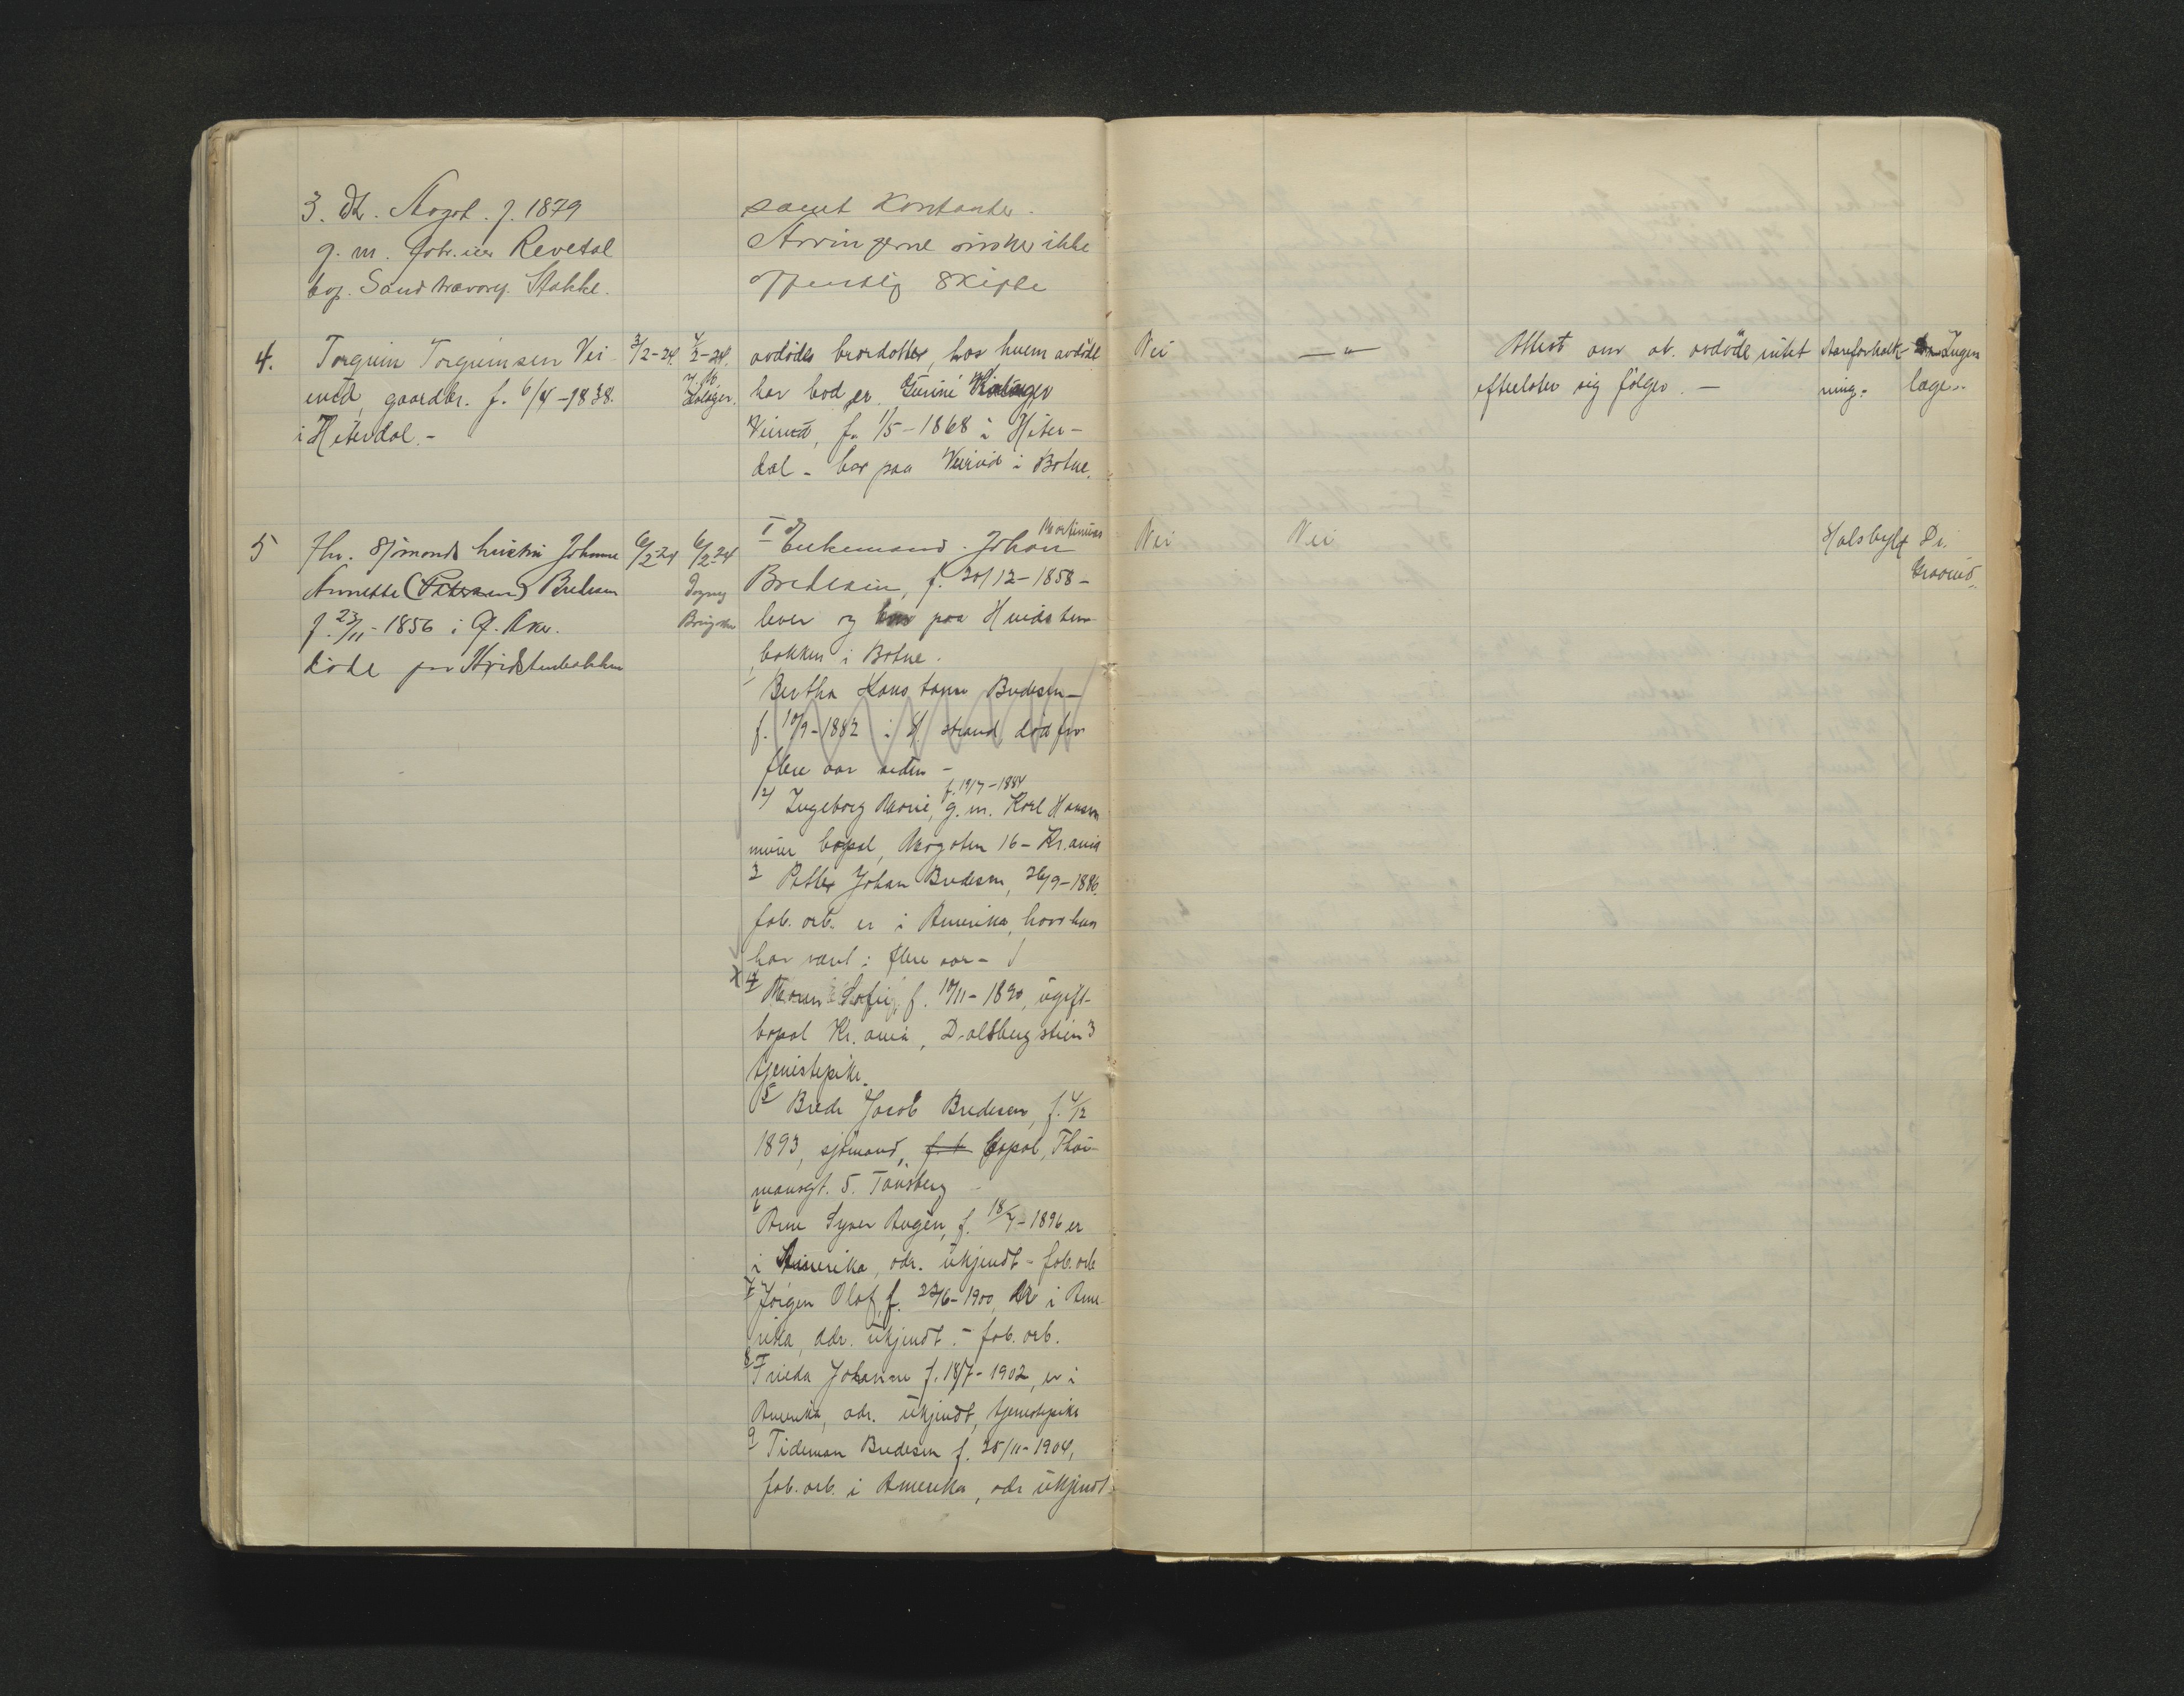 3. dt. Aagot. f. 1879
g. m. Revetal
bop. Stokke.
samt Kontanter.
Arvingerne önsker ikke
offentlig Skifte
4.
Torguim Torguimsen Vei
gaardbr. f. 6/4-1838.
i Hiterdal.-
3/2-24
4/2-24.
avdödes brordotter, hos hvem avdöde
har bod er Gunine
f. 1/5-1868 i Hiter-
dal - bor paa i Botne.
Nei
— " —
Attest om at avdöde intet
efterlater sig fölger. —
Aareforkalk-
ning.
Ingen
læge.
5
Fhv. Sjömands hustru Johanne
Annette (Pettersen) Bredesen
f. 23/11-1856 i
döde paa Hvidstenbakken
6/2-24
6/2-24
I Enkemand Johan Martinius
Bredesen, f. 30/12-1858-
lever og bor paa Hvidsten
bakken i Botne.
Bertha Konstanse Bredesen-
f. 10/9-1882 i H.strand död for
flere aar siden -
2) Ingeborg Marie, f. 19/7-1884 g. m. Karl Hansen
murer bopæl, 16 - Kr.ania
3 Petter Johan Bredesen, 26/9-1886.
fab. arb. er i Amerika, hvor han
har vært i flere aar -
X 4 Maren Sofie, f. 10/11-1890, ugift-
bopæl Kr.ania, Dalsbergstien 3
tjenestepike.
5 Brede Jacob Bredesen, f. 4/12
1893, sjömand, bopæl, Thau-
mansgt. 5. Tönsberg
6 Arne Syver f. 18/7-1896 er
i Amerika, adr. ukjendt - fab. arb
7 Jörgen Olaf, f. 22/6-1900, er i Ame
rika, adr. ukjendt. - fab. arb.
8 Frieda Johanne f. 18/7-1902, er i
Amerika, adr. ukjendt, tjenestepike
9 Tideman Bredesen f. 25/11-1904,
fab. arb. i Amerika, adr ukjendt.
Nei
Nei
Halsbyld
Dr.